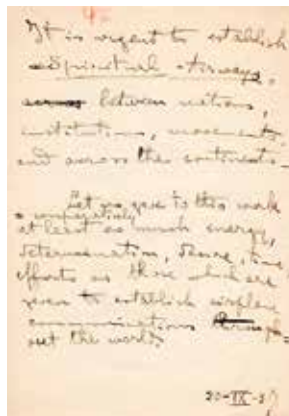 It is urgent to establish
"Spiritual Airways"
between nations,
institutions, movements,
and across the continents.
Let us give to this work
comparatively
at least as much energy,
determination, desire, time
efforts as those which are
given to establish airplane
communications through-
out the world.
20-IX-3